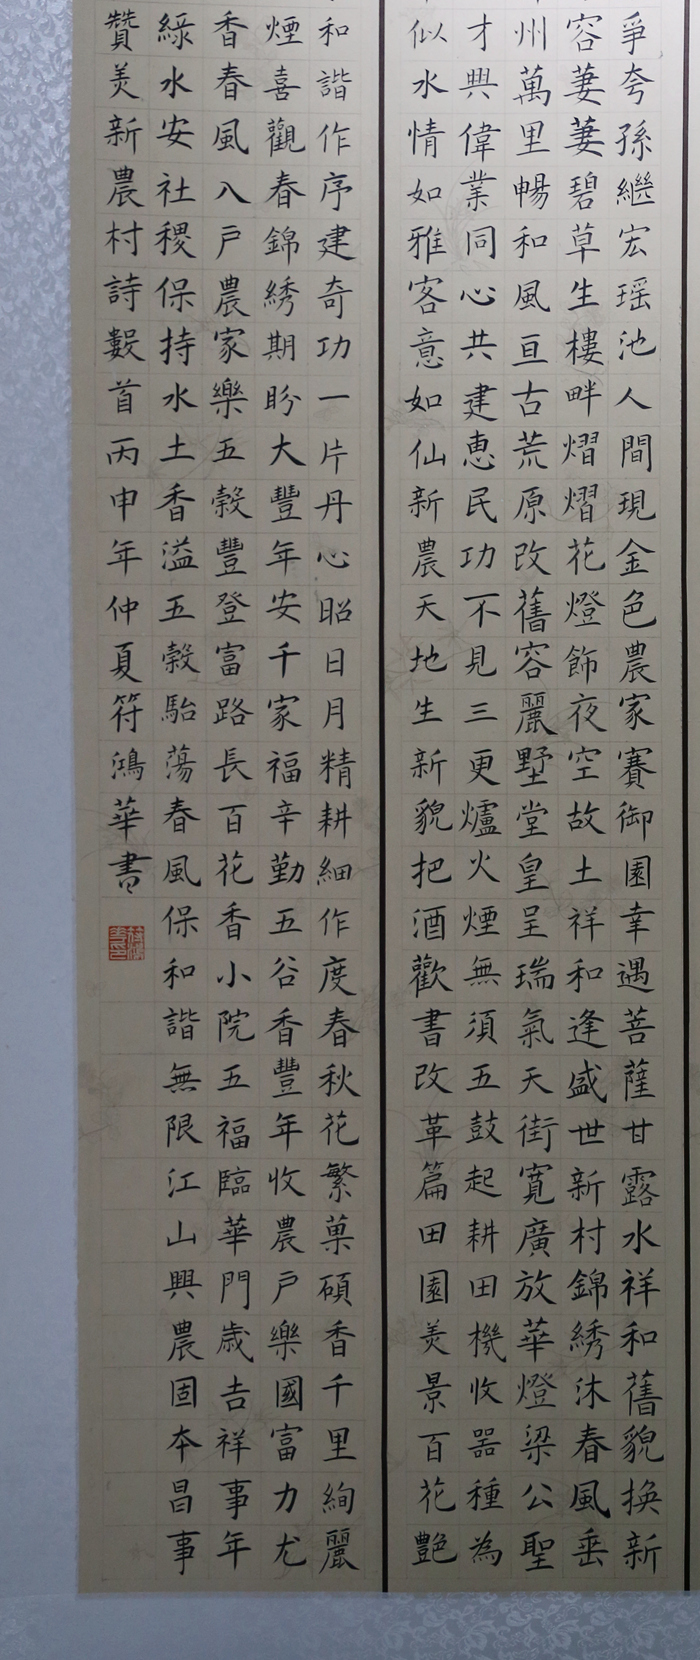 爭夸孫繼宏瑶池人間現金色農家賽御園幸遇菩薩甘露水祥和舊貌换新
容萋萋碧草生樓畔熠熠花燈飾夜空故土祥和逢盛世新村錦綉沐春風垂
州萬里暢和風亘古荒原改舊容麗墅堂皇呈瑞氣天街寬廣放華燈梁公聖
才興偉業同心共建惠民功不見三更爐火煙無須五鼓起耕田機收器種為
似水情如雅客意如仙新農天地生新貌把酒歡書改革篇田園美景百花艷
和諧作序建奇功一片丹心昭日月精耕細作度春秋花繁菓碩香千里絢麗
煙喜觀春錦綉期盼大豐年安千家福辛勤五谷香豐年收農戶樂國富力尤
香春風入戶農家樂五穀豐登富路長百花香小院五福臨華門歲吉祥事年
綠水安社稷保持水土香溢五穀駘蕩春風保和諧無限江山興農固本昌事
贊美新農村詩數首丙申年仲夏符鴻華書